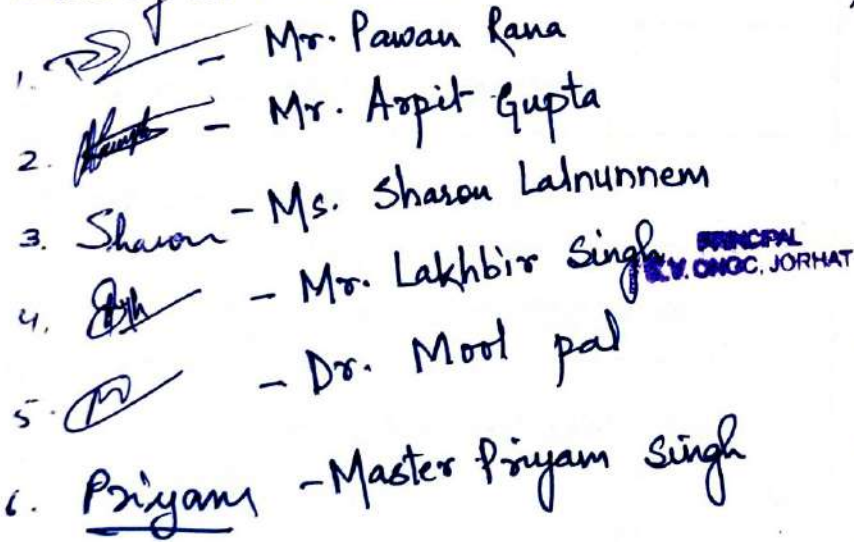 1. - Mr. Pawan Rana
2. - Mr. Arpit Gupta
3. Sharon - Ms. Sharon Lalnunnem
4. - Mr. Lakhbir Singh
PRINCIPAL
K.V. ONGC, JORHAT
5. - Dr. Mool pal
6. Priyam - Master Priyam Singh